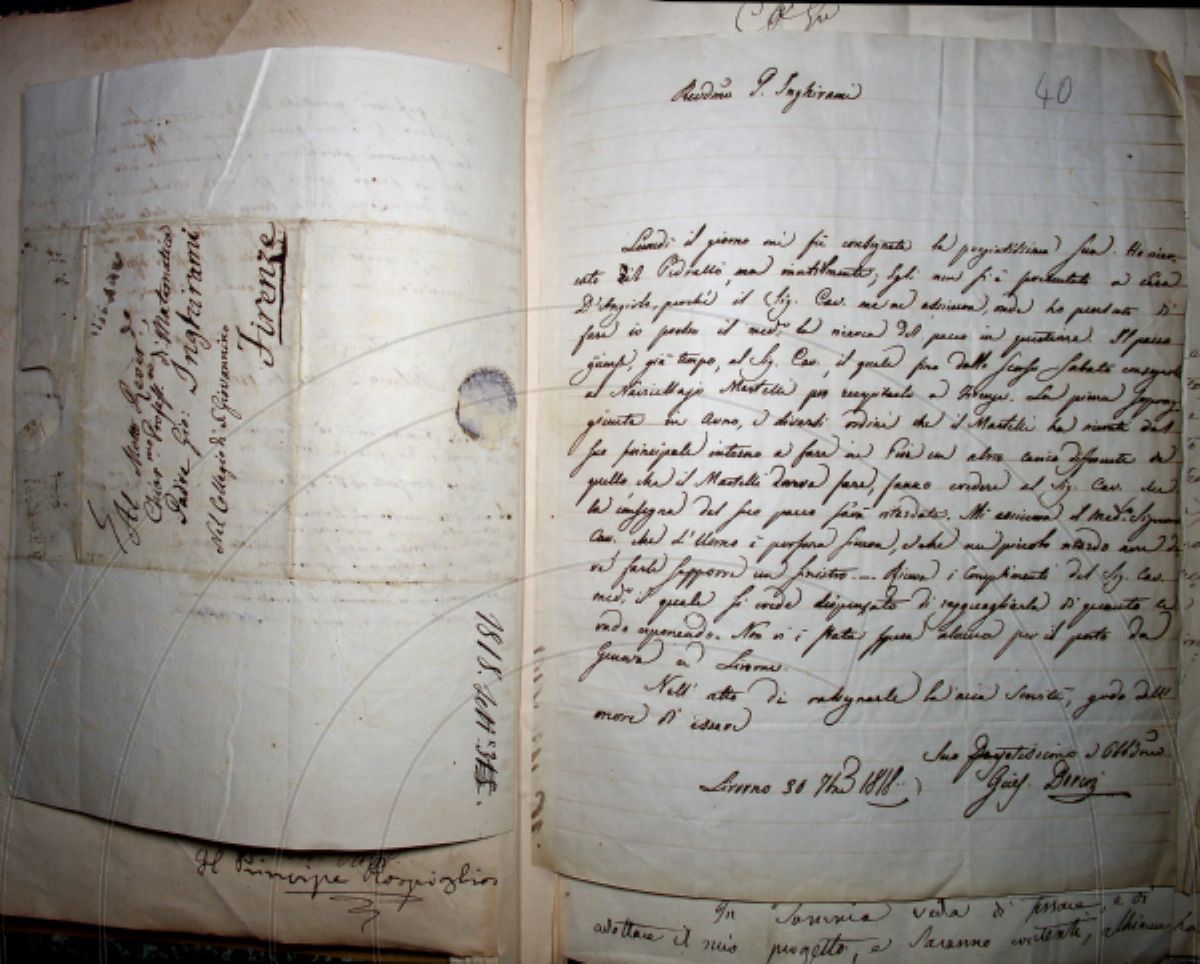 Al Molto Revdo
Chiarmo Profess. di Matematica
Padre Gio: Inghirami
Al Collegio di S. Giovannino
Firenze
Il Principe Rospiglios
40
Revdmo P. Inghirami
Lunedì il giorno mi fù consegnata la pregiatissima Sua. Ho ricer-
cato il Pedralli, ma inutilmente; Egli non si è presentato a Casa
D'Angiolo, perchè il Sig. Cav. me ne assicura, onde ho pensato di
fare io presso il med. la ricerca del pacco in questione. Il pacco
giunse, già tempo, al Sig. Cav. il quale fino dallo Scorso Sabato consegnò
al Navicellajo Martelli per recapitarlo a Firenze. La piena
giunta in Arno, e diversi ordini che il Martelli ha ricevuto dal
suo principale intorno a fare in un altro carico differente da
quello che il Martelli doveva fare, fanno credere al Sig. Cav. che
la consegna del suo pacco sarà ritardata. Mi assicura il med. Signore
Cav. che l'Uomo è persona sicura, e che un piccolo ritardo non de-
ve farle supporre un sinistro. Riceva i complimenti del Sig. Cav.
med. il quale si crede dispensato di ragguagliarla di quanto le
vado esponendo. Non vi è stata spesa alcuna per il porto da
Genova a Livorno.
Nell' atto di rassegnarle la mia Servitù, godo dell'
onore di essere
Suo Obbdmo
Livorno 30 7bre 1818.
In Saranno veda di fissare, e di
adottare il mio progetto, e saranno contenti,